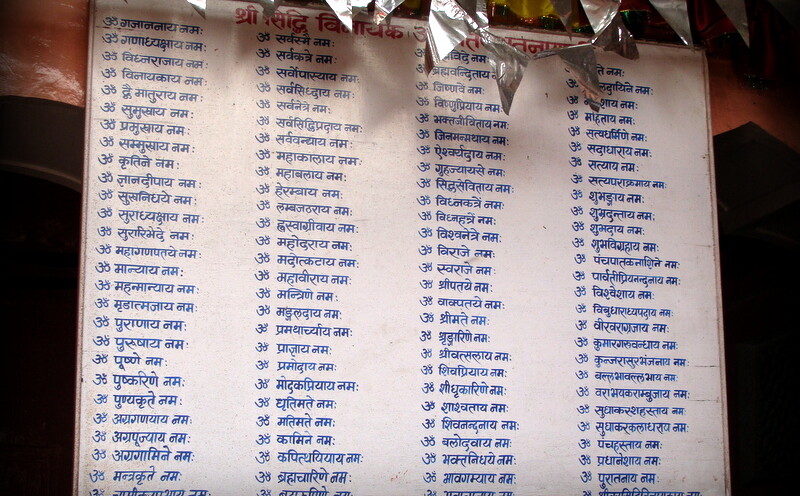 श्री सिद्धि विनायक
ॐ गजाननाय नमः
ॐ गणाध्यक्षाय नमः
ॐ विघ्नराजाय नमः
ॐ विनायकाय नमः
ॐ द्वै मातुराय नमः
ॐ सुमुखाय नमः
ॐ प्रमुखाय नमः
ॐ सम्मुखाय नमः
ॐ कृतिने नमः
ॐ ज्ञानदीपाय नमः
ॐ सुखनिधये नमः
ॐ सुराध्यक्षाय नमः
ॐ सुरारिभेदे नमः
ॐ महागणपतये नमः
ॐ मान्याय नमः
ॐ महन्मान्याय नमः
ॐ मृडात्मजाय नमः
ॐ पुराणाय नमः
ॐ पुरूषाय नमः
ॐ पूष्णे नमः
ॐ पुष्करिणे नमः
ॐ पुण्यकृते नमः
ॐ अग्रगणयाय नमः
ॐ अग्रपूज्याय नमः
ॐ अग्रगामिने नमः
ॐ मन्त्रकृते नमः
ॐ सर्वस्मै नमः
ॐ सर्वकत्रे नमः
ॐ सर्वोपास्याय नमः
ॐ सर्वसिध्दाय नमः
ॐ सर्वनेत्रे नमः
ॐ सर्वसिद्धिप्रदाय नमः
ॐ सर्ववन्द्याय नमः
ॐ महाकालाय नमः
ॐ महाबलाय नमः
ॐ हेरम्बाय नमः
ॐ लम्बजठराय नमः
ॐ ह्रस्वाग्रीवाय नमः
ॐ महोदराय नमः
ॐ मदोत्कटाय नमः
ॐ महावीराय नमः
ॐ मन्त्रिणे नमः
ॐ मङ्गलदाय नमः
ॐ प्रमथार्च्याय नमः
ॐ प्राज्ञाय नमः
ॐ प्रमोदाय नमः
ॐ मोदकप्रियाय नमः
ॐ धृतिमते नमः
ॐ मतिमते नमः
ॐ कामिने नमः
ॐ कपित्थयियाय नमः
ॐ ब्रह्मचारिणे नमः
नमः
ब्रह्मवन्दिताय नमः
ॐ जिष्णवे नमः
ॐ विष्णुप्रियाय नमः
ॐ भक्तजीविताय नमः
ॐ जितमन्मथाय नमः
ॐ ऐश्वर्यदाय नमः
ॐ गुहज्यायसे नमः
ॐ सिद्धसेविताय नमः
ॐ विध्नकत्रे नमः
ॐ विध्नहत्रे नमः
ॐ विश्वनेत्रे नमः
ॐ विराजे नमः
ॐ स्वराजे नमः
ॐ श्रीपतये नमः
ॐ वाक्पतये नमः
ॐ श्रीमते नमः
ॐ श्रृङारिणे नमः
ॐ श्रीवत्सलाय नमः
ॐ शिवप्रियाय नमः
ॐ शीधृकारिणे नमः
ॐ शाश्वताय नमः
ॐ शिवनन्दनाय नमः
ॐ बलोदवाय नमः
ॐ भक्तनिधये नमः
ॐ भावगम्याय नमः
नमः
नमः
नमः
ॐ महिताय नमः
ॐ सत्यधर्मिणे नमः
ॐ सदाधाराय नमः
ॐ सत्याय नमः
ॐ सत्यपराक्रमाय नमः
ॐ शुभङ्गाय नमः
ॐ शुभ्रदन्ताय नमः
ॐ शुभदाय नमः
ॐ शुभविग्रहाय नमः
ॐ पंचपातकनाशिने नमः
ॐ पार्वतीप्रियनन्दनाय नमः
ॐ विश्वेशाय नमः
ॐ विबुधाराध्यपदाय नमः
ॐ वीरवराग्रजाय नमः
ॐ कुमारगरुवन्धाय नमः
ॐ कुन्जरासुरभंजनाय नमः
ॐ वल्लभावल्लभाय नमः
ॐ वराभयकराम्बुजाय नमः
ॐ सुधाकरशहस्ताय नमः
ॐ सुधाकरकलाधराय नमः
ॐ पंचहस्ताय नमः
ॐ प्रधानेशाय नमः
ॐ पुरातनाय नमः